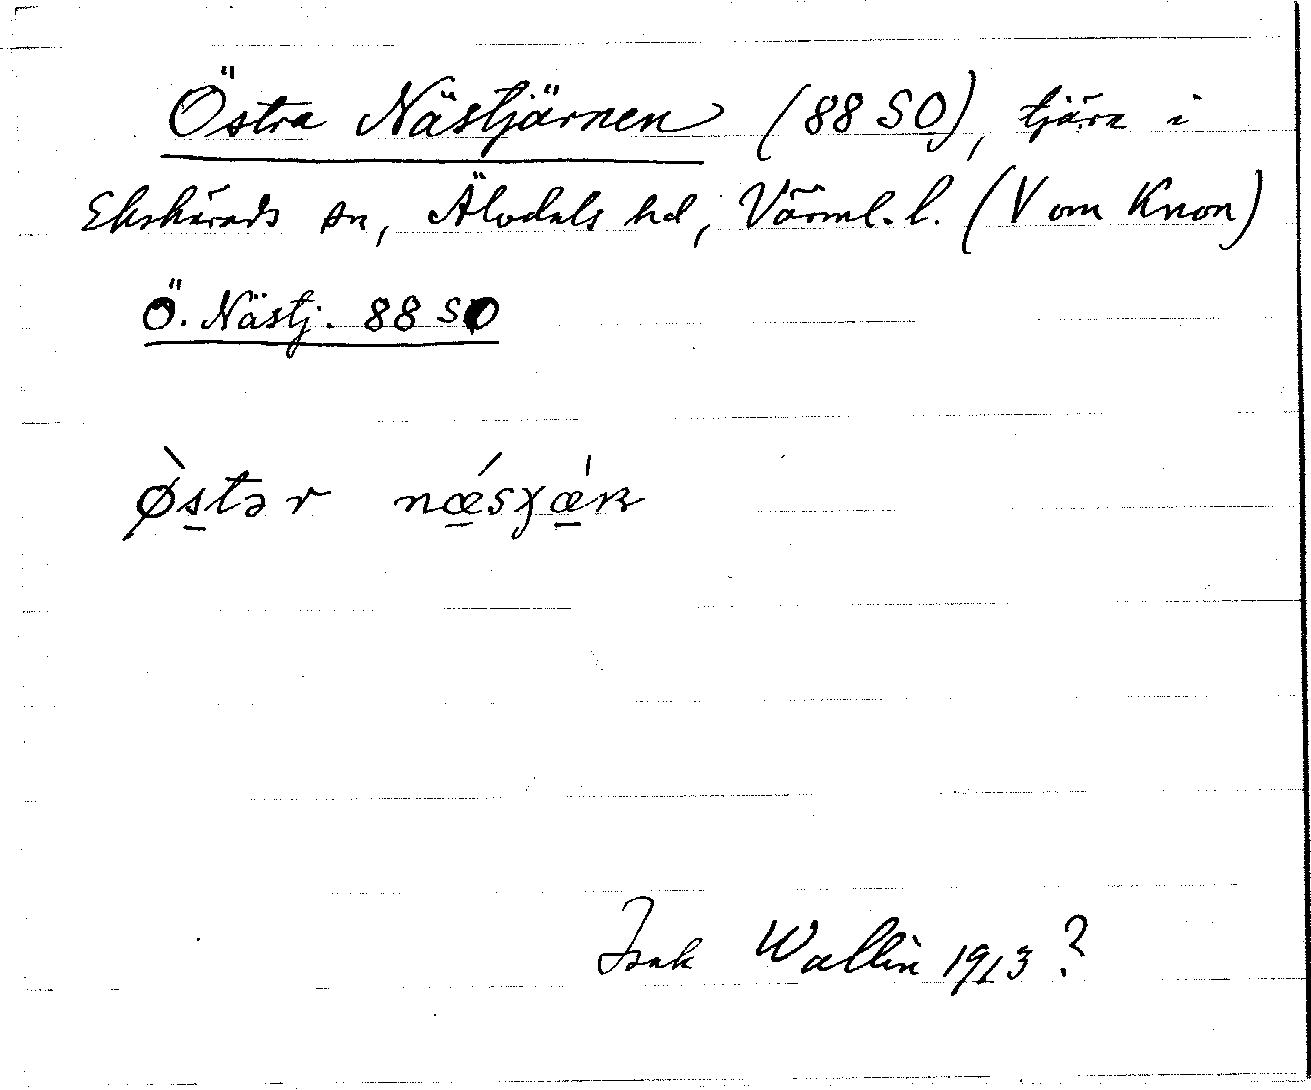 Östra Nästjärnen (88 SO), tjärn i
Ekshärads sn, Älvdals hd, Värml. l. (V om Knon)
Ö. Nästj. 88 SO
Isak Wallin 1913?